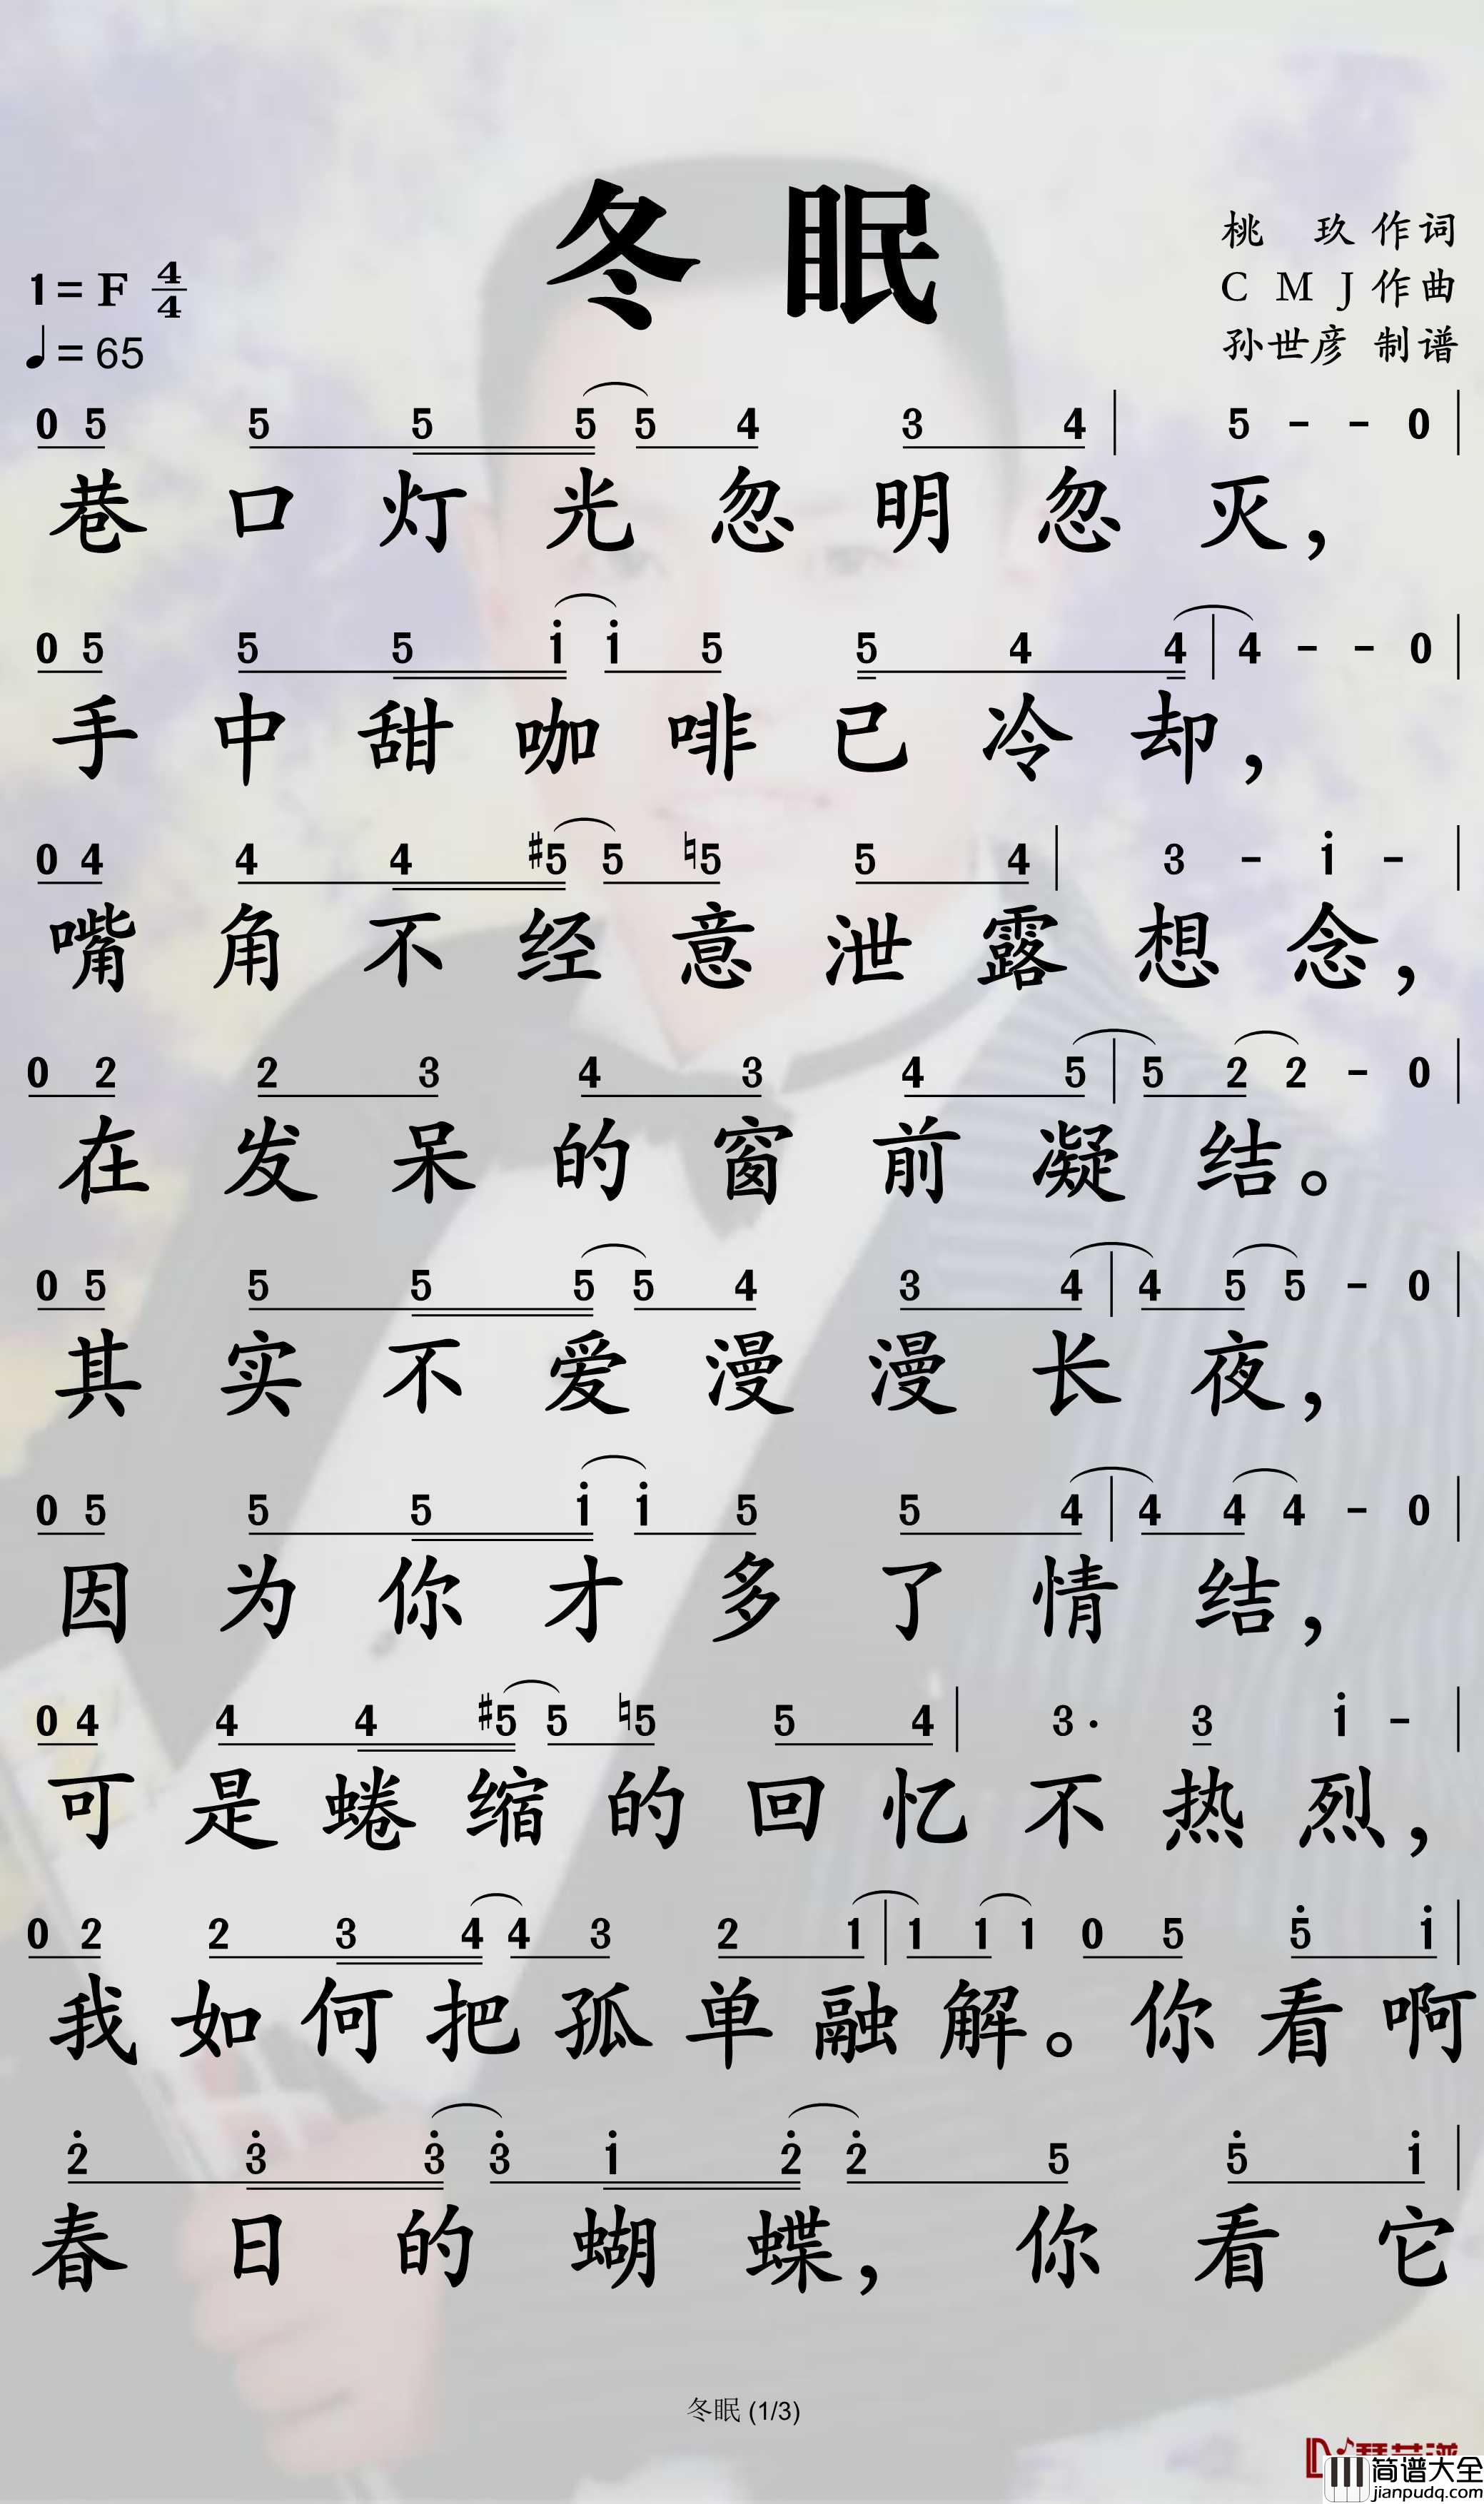 冬 眠
桃 玖 作词
C M J 作曲
孙世彦 制谱
1= F 4/4
♩= 65
0 5 5 5 5 5 4 3 4 | 5 - - 0 |
巷口灯光忽明忽灭，
0 5 5 5 i i 5 5 4 4 | 4 - - 0 |
手中甜咖啡已冷却，
0 4 4 4 #5 5 ♮5 5 4 | 3 - i - |
嘴角不经意泄露想念，
0 2 2 3 4 3 4 5 | 5 2 2 - 0 |
在发呆的窗前凝结。
0 5 5 5 5 5 4 3 4 | 4 5 5 - 0 |
其实不爱漫漫长夜，
0 5 5 5 i i 5 5 4 | 4 4 4 - 0 |
因为你才多了情结，
0 4 4 4 #5 5 ♮5 5 4 | 3· 3 i - |
可是蜷缩的回忆不热烈，
0 2 2 3 4 4 3 2 1 | 1 1 1 0 5 5̇ i |
我如何把孤单融解。你看啊
2̇ 3̇ 3̇ 3̇ i 2̇ 2̇ 5 5̇ i |
春日的蝴蝶，你看它
冬眠 (1/3)
简谱大全
jianpudq.com